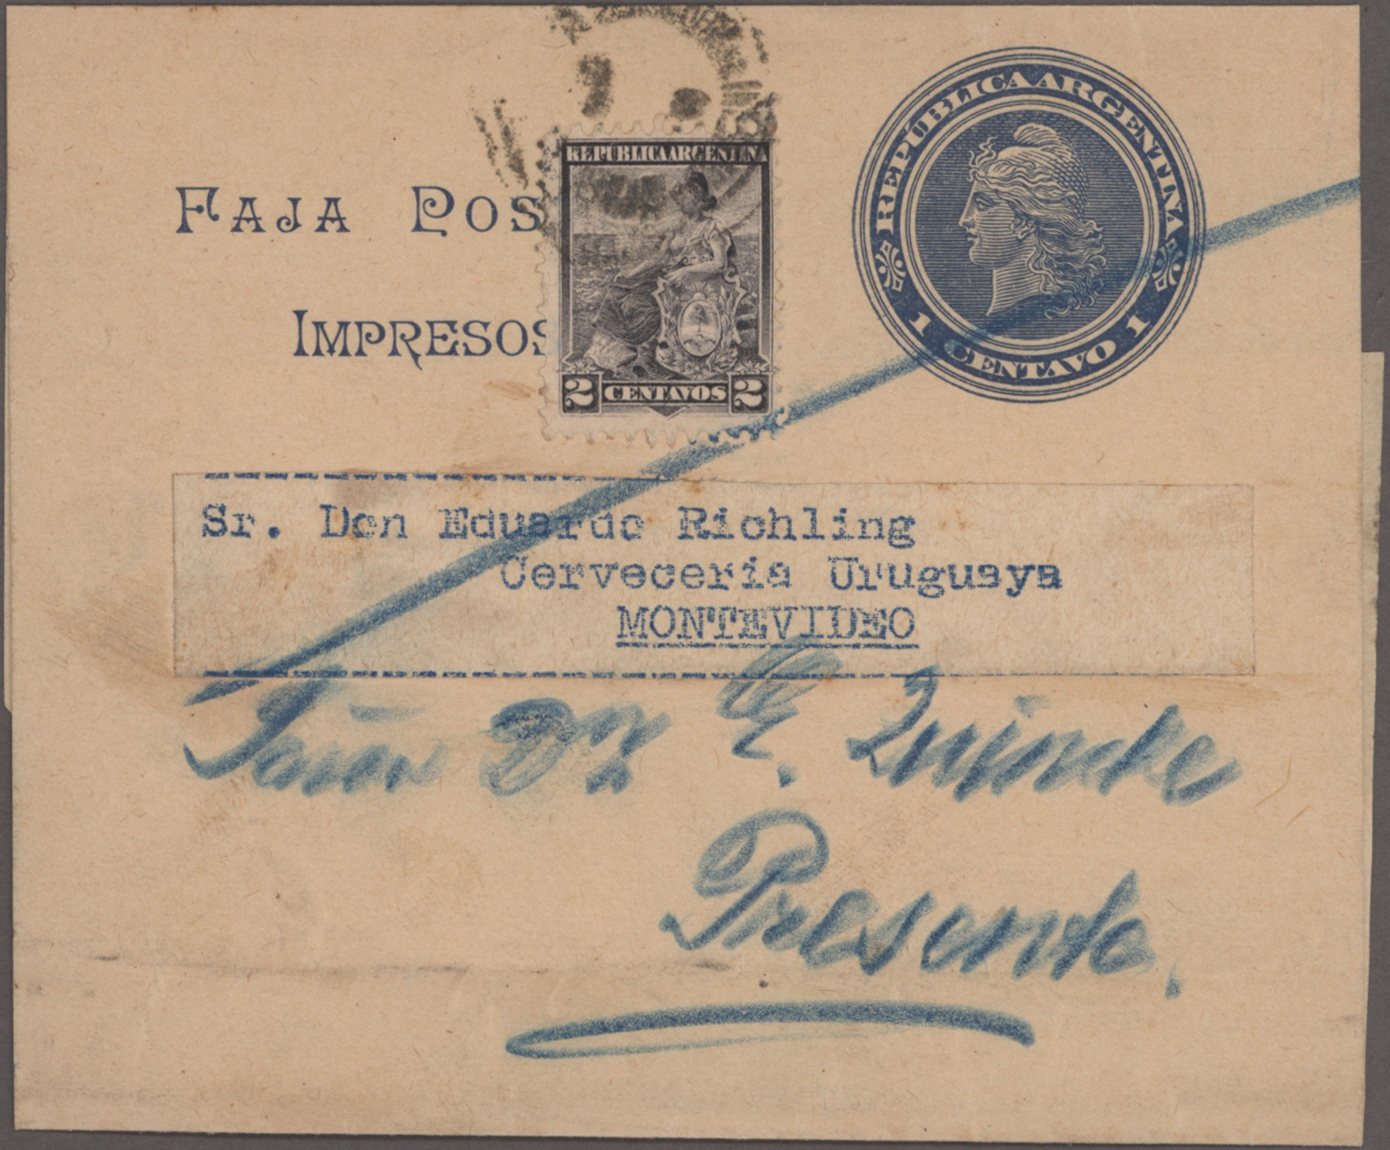 REPÚBLICA ARGENTINA
FAJA POS
IMPRESOS
REPÚBLICA ARGENTINA
2 CENTAVOS 2
1 CENTAVO 1
Sr. Don Eduardo Richling
Cerveceria Uruguaya
MONTEVIDEO
Señor Dr. E. Quincke
Presente.